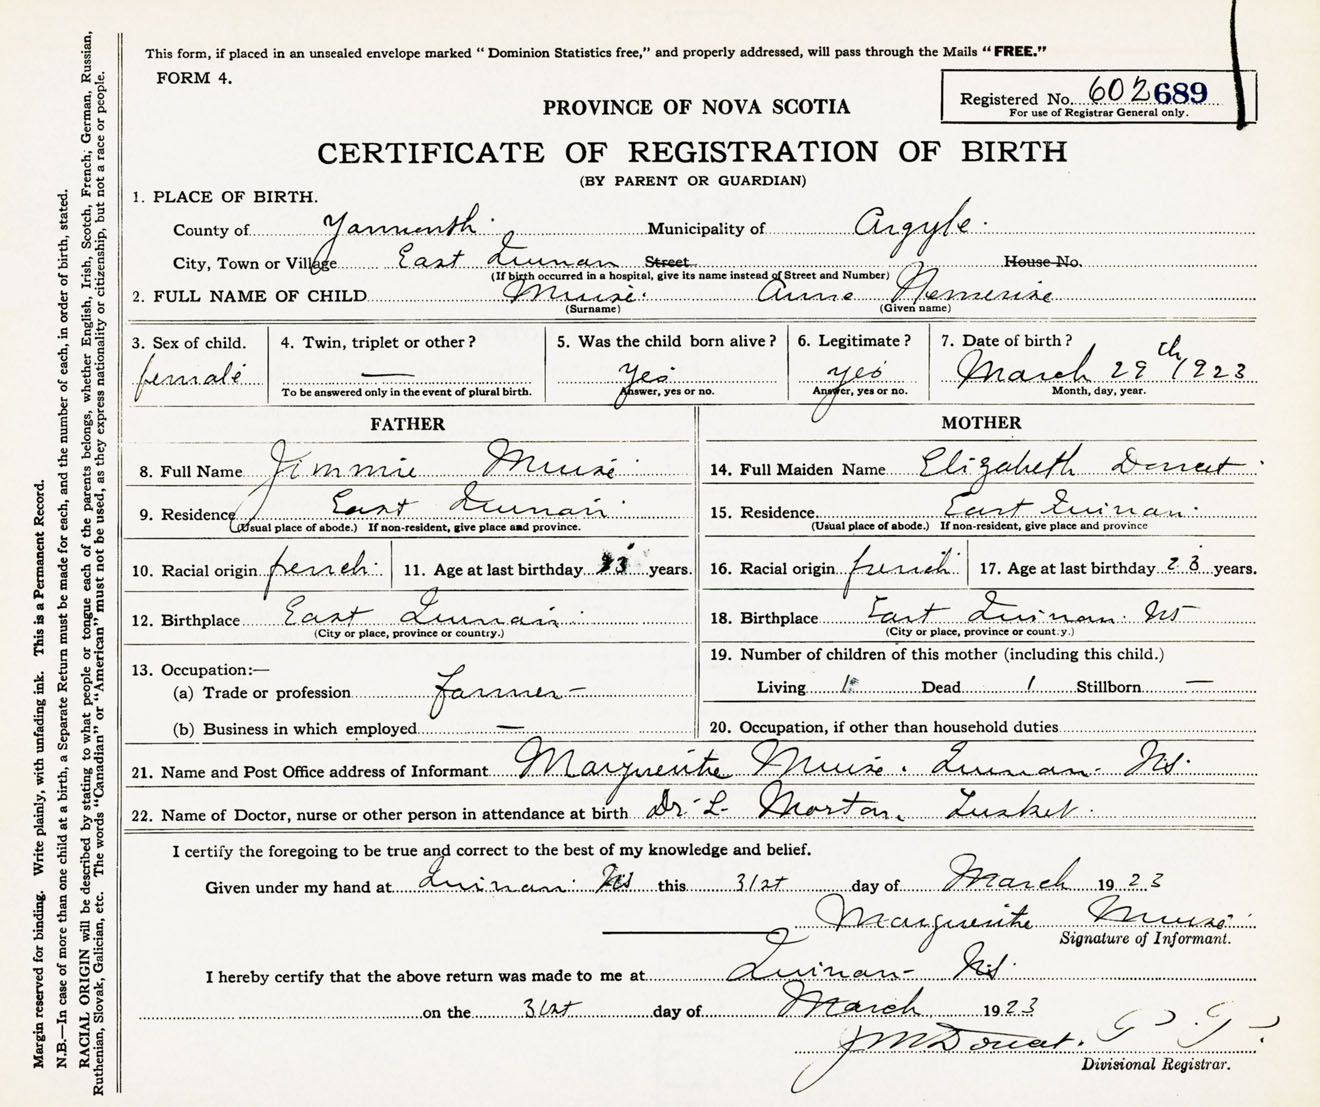 This form, if placed in an unsealed envelope marked “ Dominion Statistics free,” and properly addressed, will pass through the Mails “ FREE.”
FORM 4.
Registered No. 602689
For use of Registrar General only.
PROVINCE OF NOVA SCOTIA
CERTIFICATE OF REGISTRATION OF BIRTH
(BY PARENT OR GUARDIAN)
1. PLACE OF BIRTH.
County of Yarmouth Municipality of Argyle
City, Town or Village East Quinan Street House No.
(If birth occurred in a hospital, give its name instead of Street and Number)
2. FULL NAME OF CHILD Muise Anne
(Surname) (Given name)
3. Sex of child. 4. Twin, triplet or other? 5. Was the child born alive? 6. Legitimate? 7. Date of birth?
female — yes yes March 29th 1923
To be answered only in the event of plural birth. Answer, yes or no. Answer, yes or no. Month, day, year.
FATHER
8. Full Name Jimmie Muise
9. Residence East Quinan
(Usual place of abode.) If non-resident, give place and province.
10. Racial origin french 11. Age at last birthday years.
12. Birthplace East Quinan
(City or place, province or country.)
13. Occupation:—
(a) Trade or profession farmer -
(b) Business in which employed —
MOTHER
14. Full Maiden Name Elizabeth Doucet
15. Residence East Quinan
(Usual place of abode.) If non-resident, give place and province
16. Racial origin french 17. Age at last birthday 23 years.
18. Birthplace East Quinan NS
(City or place, province or country.)
19. Number of children of this mother (including this child.)
Living 1 Dead 1 Stillborn —
20. Occupation, if other than household duties
21. Name and Post Office address of Informant Marguerithe Muise. Quinan- NS.
22. Name of Doctor, nurse or other person in attendance at birth Dr. L. Morton, Tusket
I certify the foregoing to be true and correct to the best of my knowledge and belief.
Given under my hand at Quinan NS this 31st day of March 1923
Marguerithe Muise
Signature of Informant.
I hereby certify that the above return was made to me at Quinan- NS.
on the 31st day of March 1923
J M Doucet. P. P.
Divisional Registrar.
Margin reserved for binding. Write plainly, with unfading ink. This is a Permanent Record.
N.B.—In case of more than one child at a birth, a Separate Return must be made for each, and the number of each, in order of birth, stated.
RACIAL ORIGIN will be described by stating to what people or tongue each of the parents belongs, whether English, Irish, Scotch, French; German, Russian,
Ruthenian, Slovak, Galician, etc. The words “Canadian” or “American” must not be used, as they express nationality or citizenship, but not a race or people.